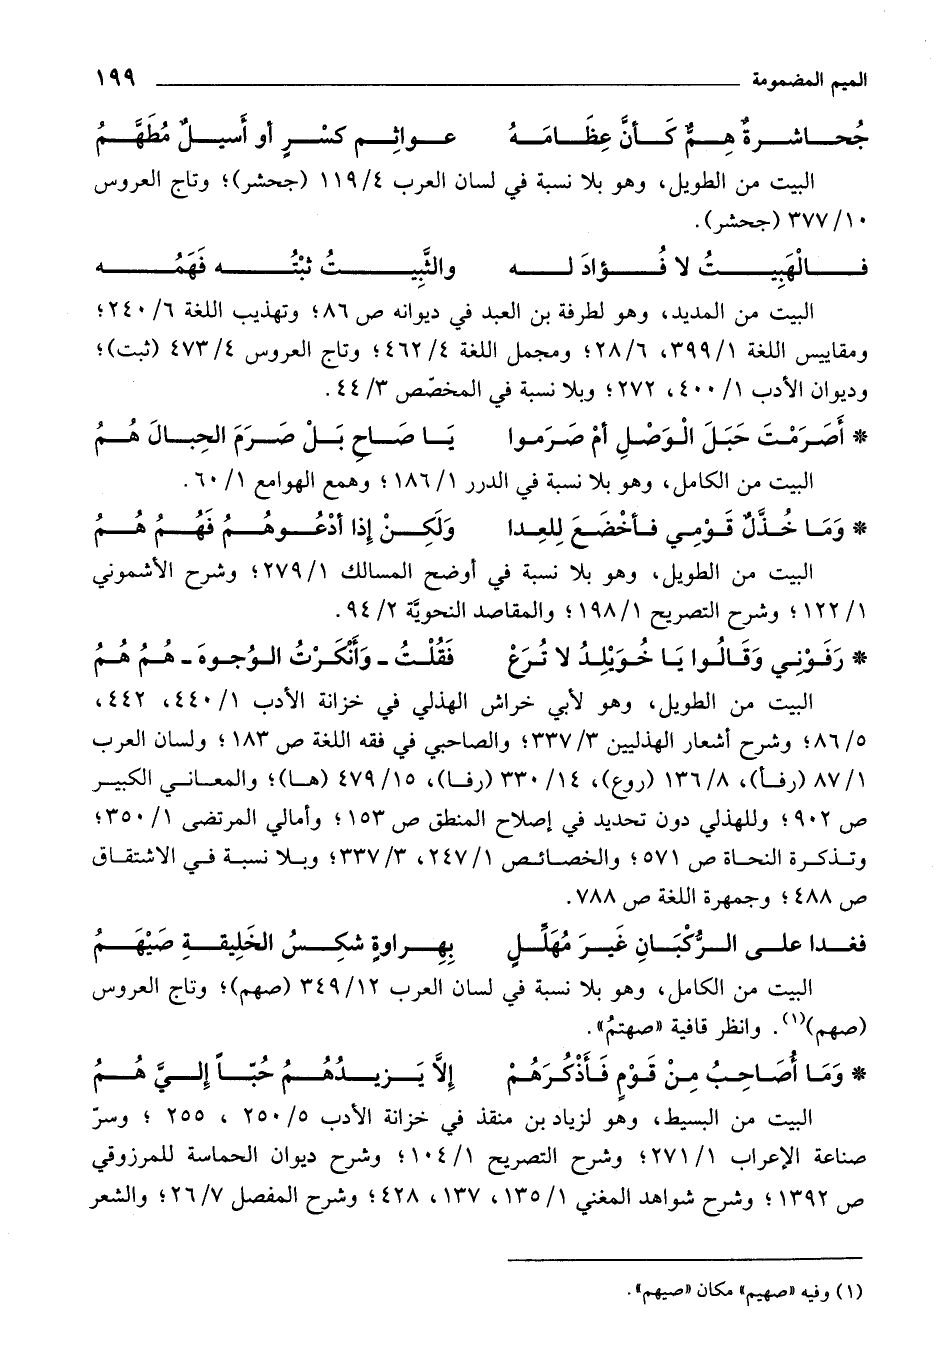 الميم المضمومة ١٩٩
جُحَاشِرةٌ هِمٌّ كَأنَّ عِظَامَهُ عواثِم كسْرٍ أو أَسيلٌ مُطَهَّمُ
البيت من الطويل، وهو بلا نسبة في لسان العرب ١١٩/٤ (جحشر)؛ وتاج العروس
٣٧٧/١٠ (جحشر).
فالْهَبِيتُ لا فُؤادَ لَه والثَّبِيتُ ثبْتُه فَهَمُه
البيت من المديد، وهو لطرفة بن العبد في ديوانه ص ٨٦؛ وتهذيب اللغة ٢٤٠/٦؛
ومقاييس اللغة ٣٩٩/١، ٢٨/٦؛ ومجمل اللغة ٤٦٢/٤؛ وتاج العروس ٤٧٣/٤ (ثبت)؛
وديوان الأدب ٤٠٠/١، ٢٧٢؛ وبلا نسبة في المخصّص ٤٤/٣.
* أَصَرَمْتَ حَبَلَ الْوَصْلِ أمْ صَرَموا يَا صَاحِ بَلْ صَرَمَ الحِبالَ هُمُ
البيت من الكامل، وهو بلا نسبة في الدرر ١٨٦/١؛ وهمع الهوامع ٦٠/١.
* وَمَا خُذَّلٌ قَوْمِي فأخْضَعَ لِلعِدا وَلَكِنْ إِذا أدْعُوهُمُ فَهُمُ هُمُ
البيت من الطويل، وهو بلا نسبة في أوضح المسالك ٢٧٩/١؛ وشرح الأشموني
١٢٢/١؛ وشرح التصريح ١٩٨/١؛ والمقاصد النحويَّة ٩٤/٢.
* رَفَوْنِي وَقَالُوا يَا خُوَيْلِدُ لا تُرَعْ فَقُلْتُ - وَأَنْكَرْتُ الوُجوهَ - هُمُ هُمُ
البيت من الطويل، وهو لأبي خراش الهذلي في خزانة الأدب ٤٤٠/١، ٤٤٢،
٨٦/٥؛ وشرح أشعار الهذليين ٣٣٧/٣؛ والصاحبي في فقه اللغة ص ١٨٣؛ ولسان العرب
٨٧/١ (رفأ)، ١٣٦/٨ (روع)، ٣٣٠/١٤ (رفا)، ٤٧٩/١٥ (هـا)؛ والمعاني الكبير
ص ٩٠٢؛ وللهذلي دون تحديد في إصلاح المنطق ص ١٥٣؛ وأمالي المرتضى ٣٥٠/١؛
وتذكرة النحاة ص ٥٧١؛ والخصائص ٢٤٧/١، ٣٣٧/٣؛ وبلا نسبة في الاشتقاق
ص ٤٨٨؛ وجمهرة اللغة ص ٧٨٨.
فغدا على الرُّكْبَانِ غَيرَ مُهَلِّلٍ بِهِراوةٍ شكِسُ الخَلِيقةِ صَيْهَمُ
البيت من الكامل، وهو بلا نسبة في لسان العرب ٣٤٩/١٢ (صهم)؛ وتاج العروس
(صهم)(١). وانظر قافية «صهتمُ».
* وَمَا أُصَاحِبُ مِنْ قَوْمٍ فَأَذْكُرَهُمْ إِلَّا يَزيدُهُمُ حُبّاً إِلَيَّ هُمُ
البيت من البسيط، وهو لزياد بن منقذ في خزانة الأدب ٢٥٠/٥، ٢٥٥؛ وسرّ
صناعة الإعراب ٢٧١/١؛ وشرح التصريح ١٠٤/١؛ وشرح ديوان الحماسة للمرزوقي
ص ١٣٩٢؛ وشرح شواهد المغني ١٣٥/١، ١٣٧، ٤٢٨؛ وشرح المفصل ٢٦/٧؛ والشعر
(١) وفيه «صهيم» مكان «صيهم».